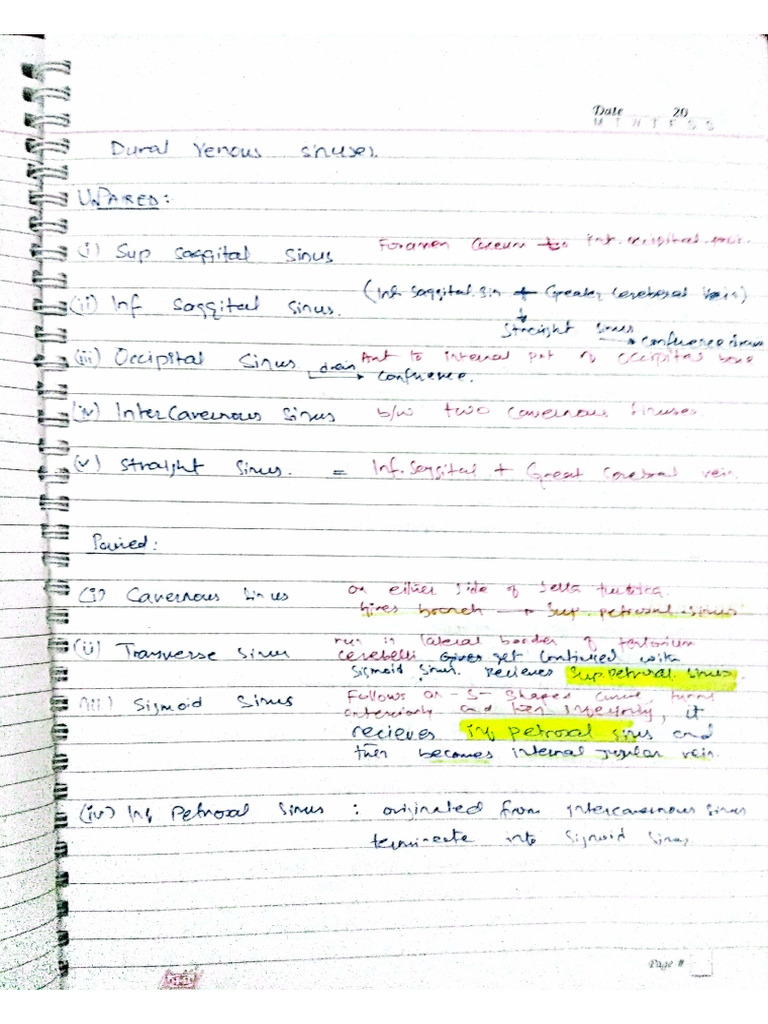 Date 20
M T W T F S S
Dural Venous sinuses.
UNPAIRED:
(i) Sup Saggital Sinus Foramen Cecum to int. occipital
(ii) Inf Saggital Sinus. (Inf Saggital Sin + Greater Cerebral Vein)
Straight sinus → confluence
(iii) Occipital Sinus Ant to internal prt of occipital bone
drain → confluence.
(iv) InterCavernous Sinus b/w two cavernous sinuses
(v) Straight Sinus. = Inf. Saggital + Great Cerebral vein.
Paired:
(i) Cavernous Sinus on either side of Sella turcica.
Gives branch → Sup. petrosal sinus
(ii) Transverse Sinus run in lateral border of tentorium
cerebelli get continued with
Sigmoid Sinus. Recieves Sup petrosal sinus.
(iii) Sigmoid Sinus Follows an -S- Shaped curve, turns
anteriorly and then inferiorly, it
recieves inf petrosal sinus and
then becomes internal jugular vein.
(iv) Inf Petrosal Sinus : originated from intercavernous Sinus
terminate into Sigmoid Sinus
Page #